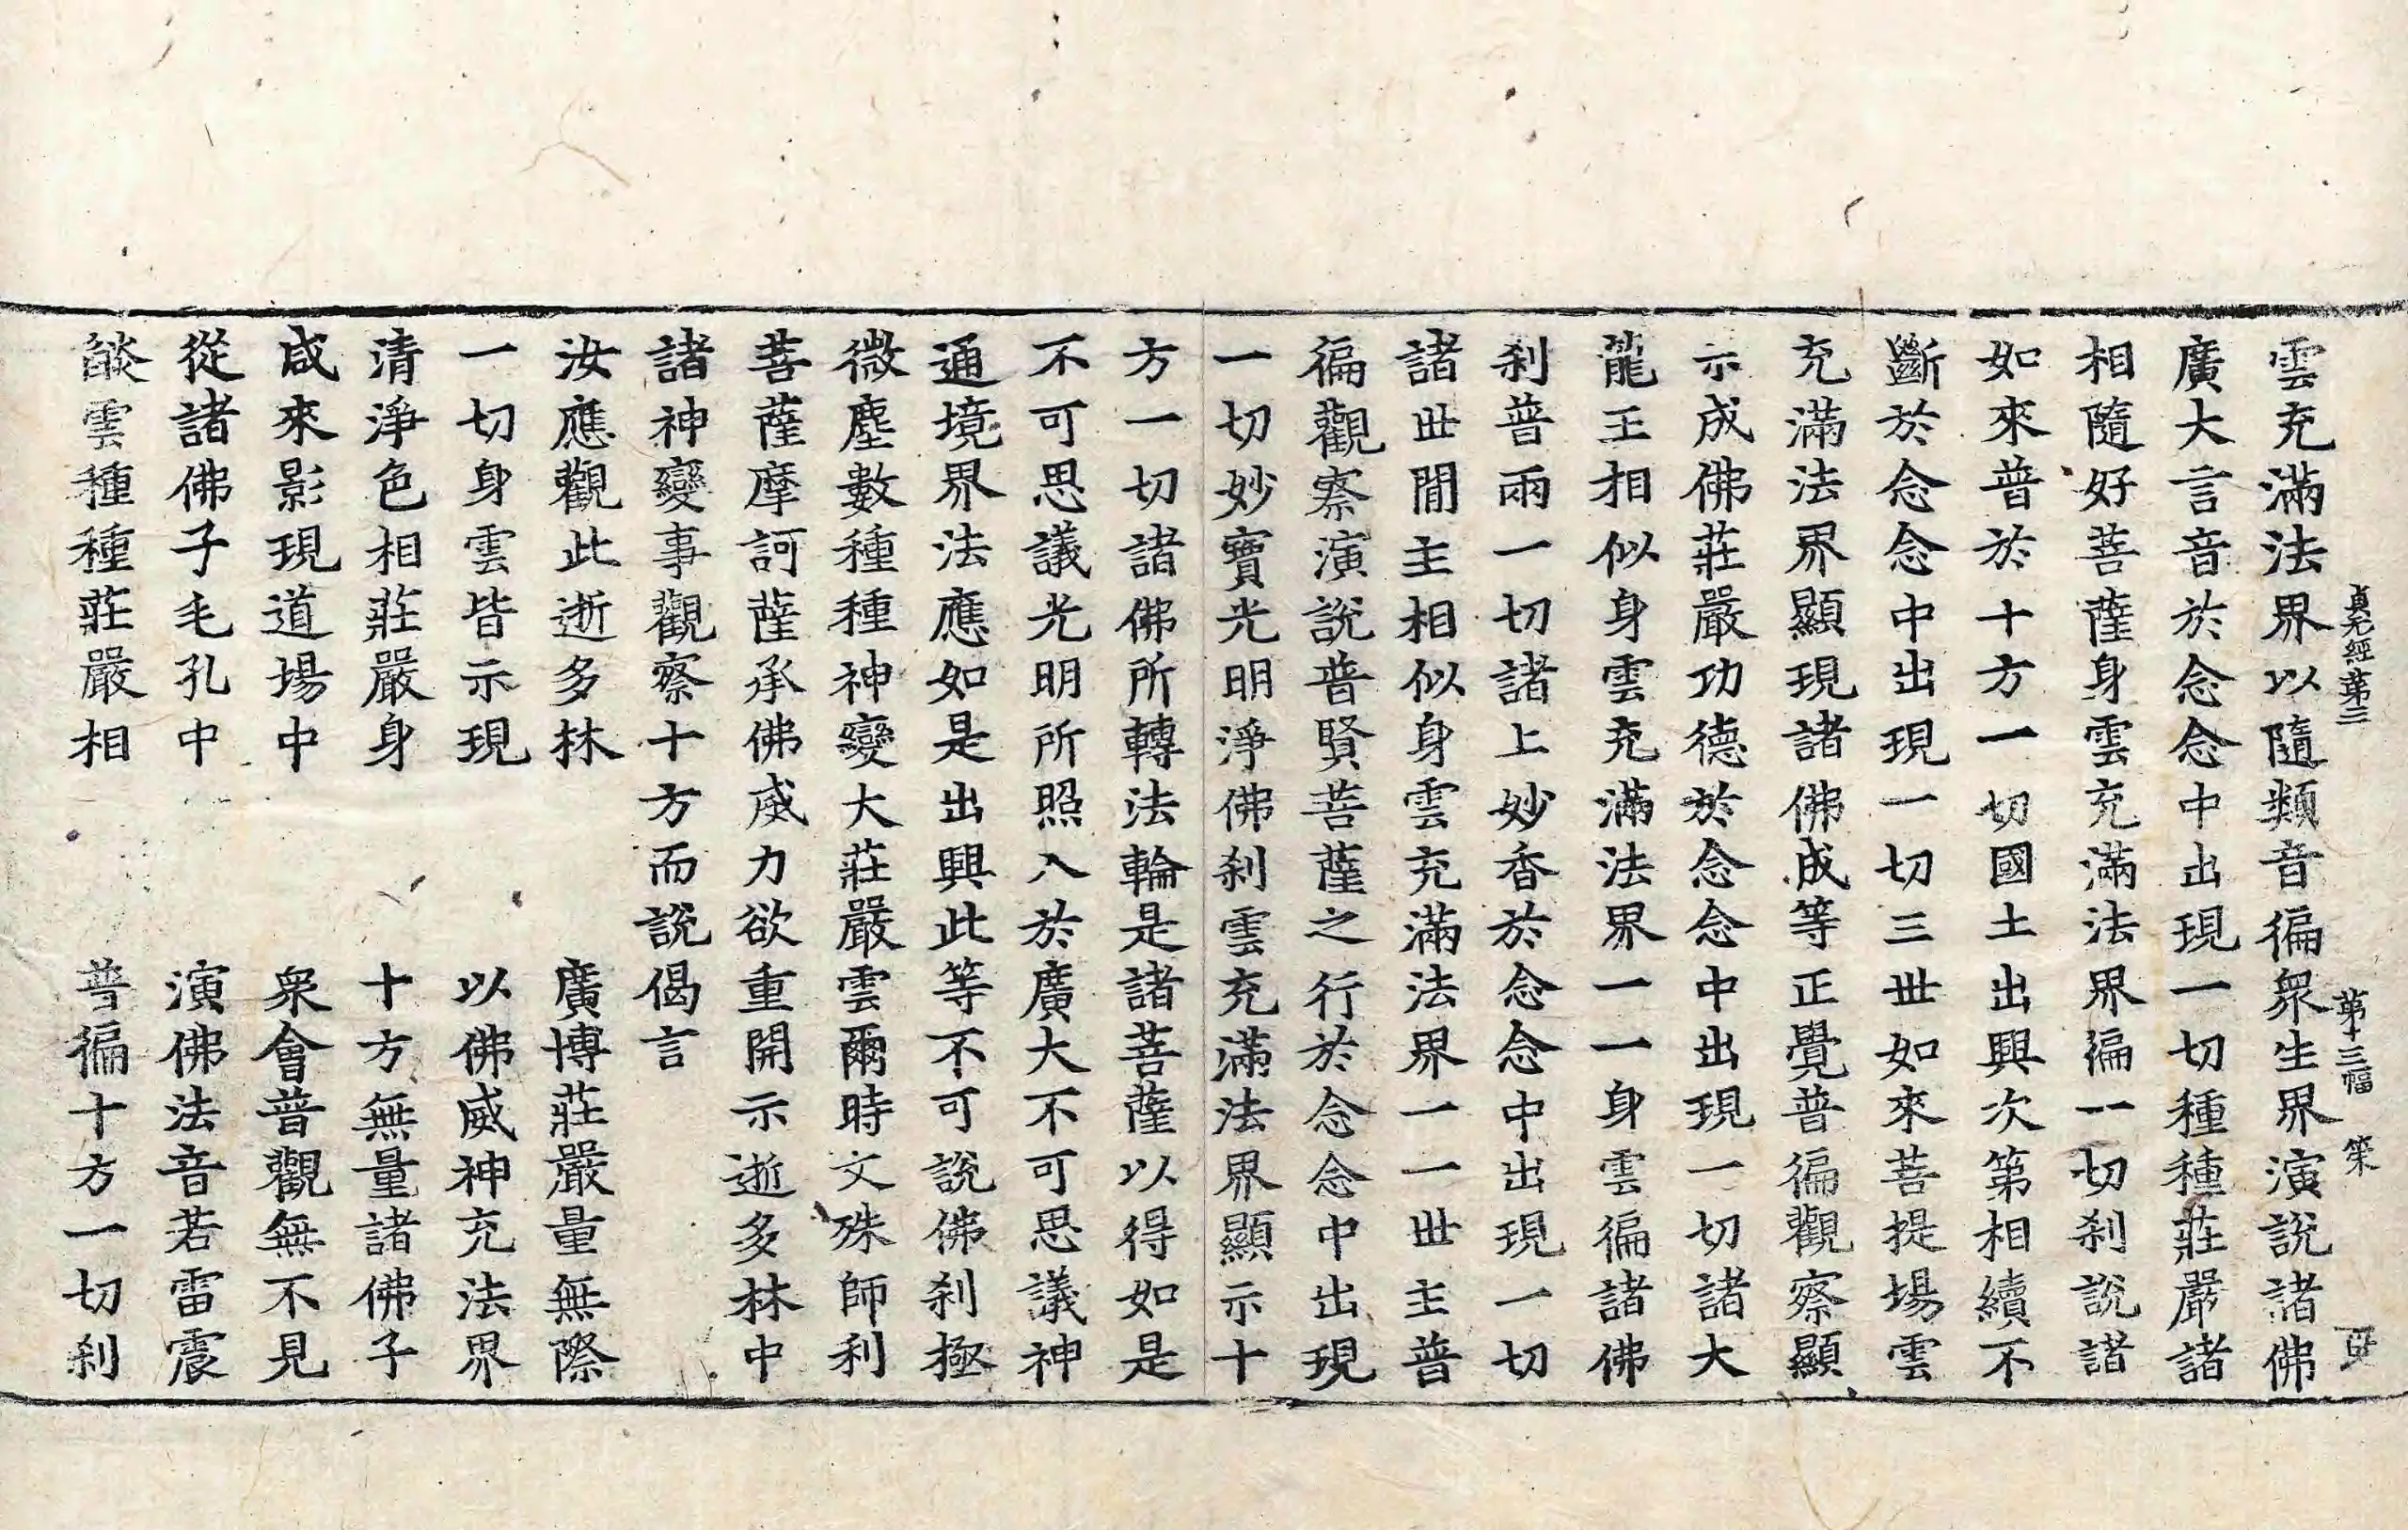 貞元經第三 第十三幅 策 百
雲充滿法界以隨類音徧衆生界演說諸佛
廣大言音於念念中出現一切種種莊嚴諸
相隨好菩薩身雲充滿法界徧一切刹說諸
如來普於十方一切國土出興次第相續不
斷於念念中出現一切三世如來菩提場雲
充滿法界顯現諸佛成等正覺普徧觀察顯
示成佛莊嚴功德於念念中出現一切諸大
龍王相似身雲充滿法界一一身雲徧諸佛
刹普雨一切諸上妙香於念念中出現一切
諸世間主相似身雲充滿法界一一世主普
徧觀察演說普賢菩薩之行於念念中出現
一切妙寶光明淨佛刹雲充滿法界顯示十
方一切諸佛所轉法輪是諸菩薩以得如是
不可思議光明所照入於廣大不可思議神
通境界法應如是出興此等不可說佛刹極
微塵數種種神變大莊嚴雲爾時文殊師利
菩薩摩訶薩承佛威力欲重開示逝多林中
諸神變事觀察十方而說偈言
汝應觀此逝多林 廣博莊嚴量無際
一切身雲皆示現 以佛威神充法界
清淨色相莊嚴身 十方無量諸佛子
咸來影現道場中 衆會普觀無不見
從諸佛子毛孔中 演佛法音若雷震
燄雲種種莊嚴相 普徧十方一切刹